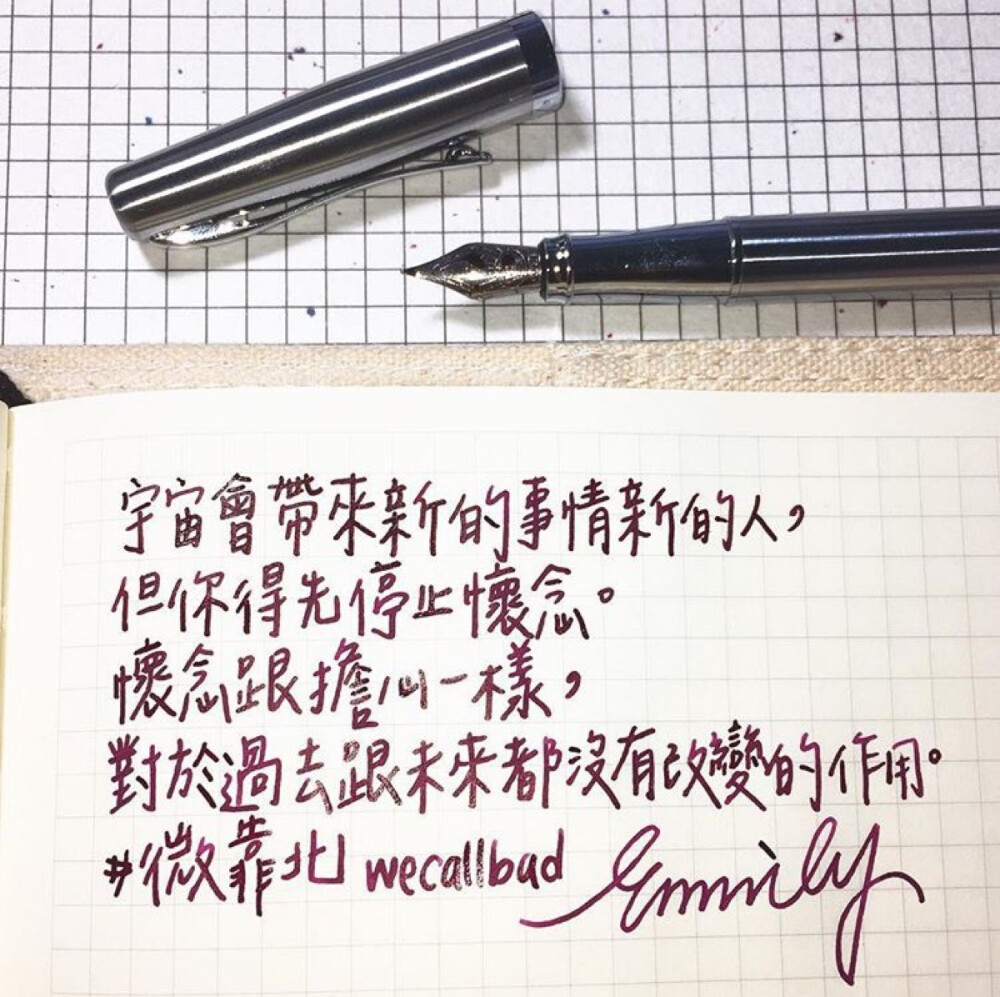 宇宙會帶來新的事情新的人，
但你得先停止懷念。
懷念跟擔心一樣，
對於過去跟未來都沒有改變的作用。
#微靠北 wecallbad Emmily